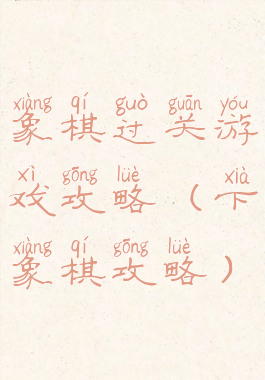 xiàng qí guò guān yóu
象棋过关游
xì gōng lüè xià
戏攻略(下
xiàng qí gōng lüè
象棋攻略)